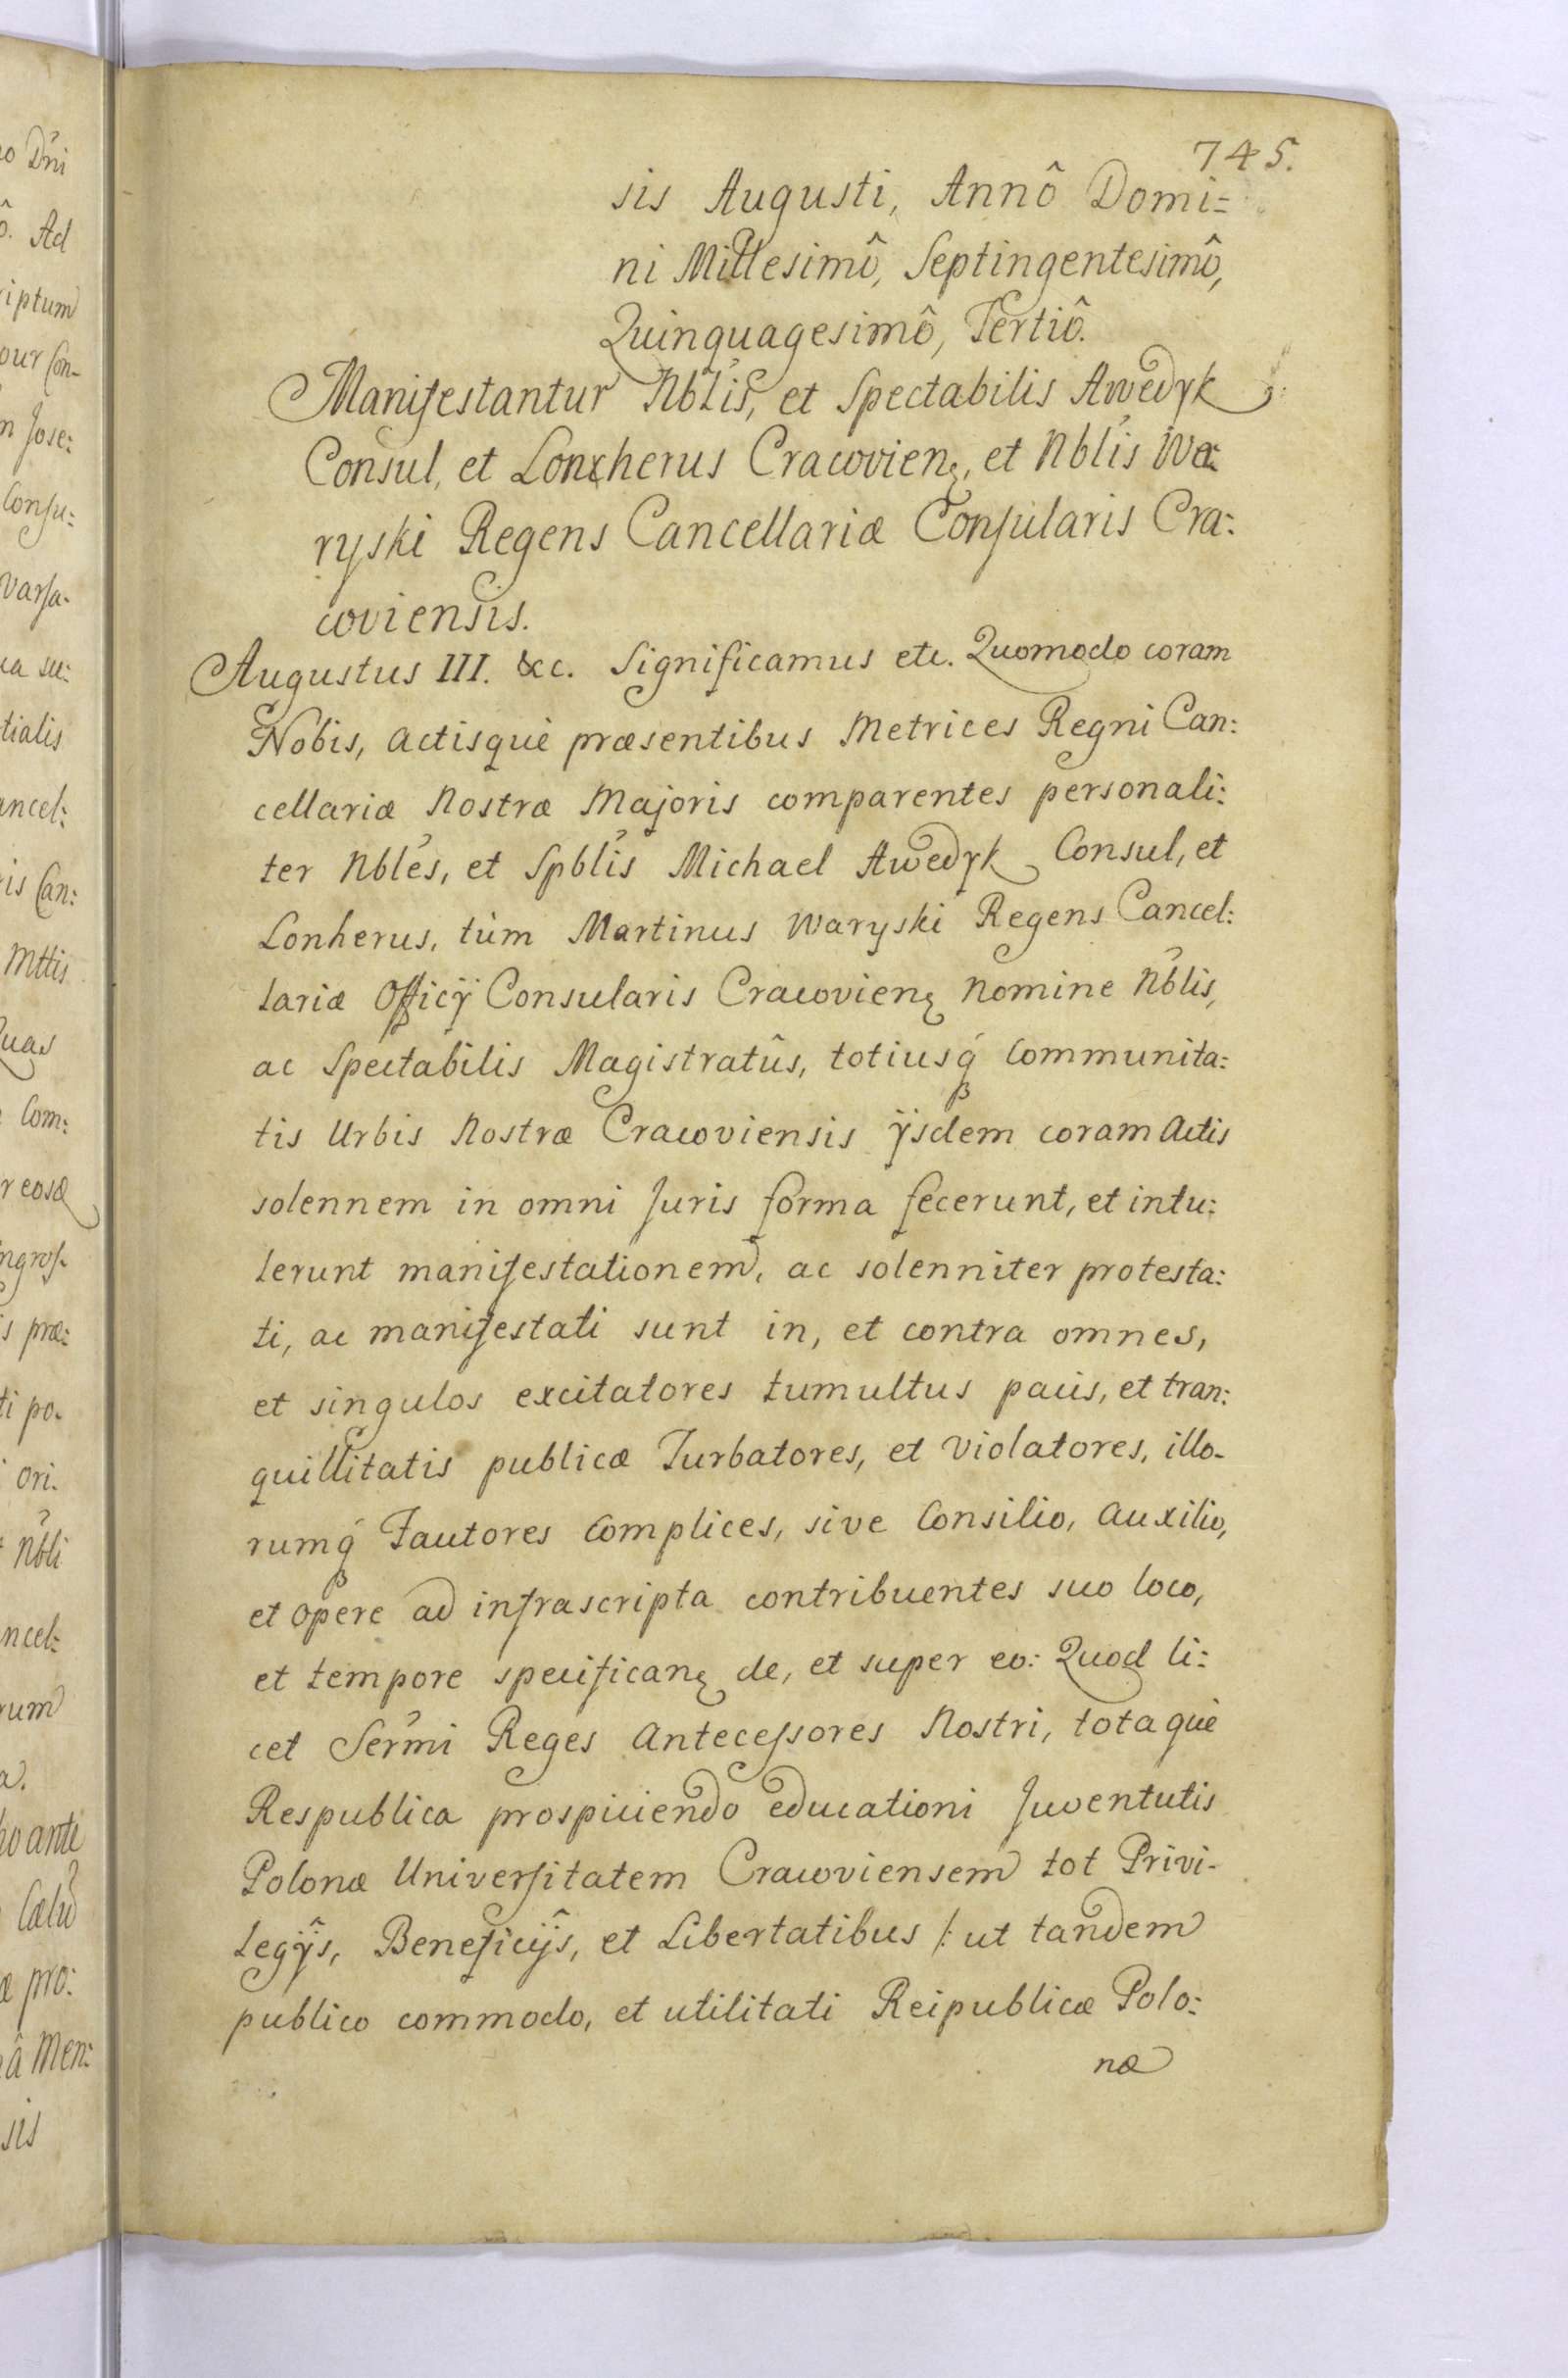 745.
sis Augusti, Annô Domi=
ni Millesimô, Septingentesimô,
Quinquagesimô, Tertiô.
Manifestantur Nblis, et Spectabilis Awedyk
Consul, et Lonxherus Cracovien, et Nblis Wa:
ryski Regens Cancellariæ Consularis Cra:
coviensis.
Augustus III. &c. Significamus etc. Quomodo coram
Nobis, actisquè præsentibus Metrices Regni Can:
cellariæ Nostræ Majoris comparentes personali:
ter Nbles, et Spblis Michael Awedyk Consul, et
Lonherus, tùm Martinus Waryski Regens Cancel:
lariæ Officÿ Consularis Cracovien nomine Nblis,
ac Spectabilis Magistratûs, totiusq́ Communita:
tis Urbis Nostræ Cracoviensis ÿsdem coram Actis
solennem in omni Juris forma fecerunt, et intu:
lerunt manifestationem, ac solenniter protesta:
ti, ac manifestati sunt in, et contra omnes,
et singulos excitatores tumultus pacis, et tran:
quillitatis publicæ Turbatores, et violatores, illo-
rumq́ Fautores Complices, sive Consilio, auxilio,
et opere ad infrascripta contribuentes suo loco,
et tempore specifican de, et super eo: Quod li:
cet Sermi Reges Antecessores Nostri, totaquè
Respublica prospiciendo educationi Juventutis
Polonæ Universitatem Cracoviensem tot Privi-
legÿs, Beneficÿs, et Libertatibus /: ut tandem
publico commodo, et utilitati Reipublicæ Polo:
næ
no Dni
ô. Ad
riptum
our Con-
m Jose:
Consu:
Varsa-
ca su:
tialis
ancel:
ris Can:
Mttis
Quas
Com:
r eosd
ingros-
is præ:
ti po-
ori-
Nbli
ancel:
rum
a.
ho ante
Cælu
æ pro:
â Men:
sis